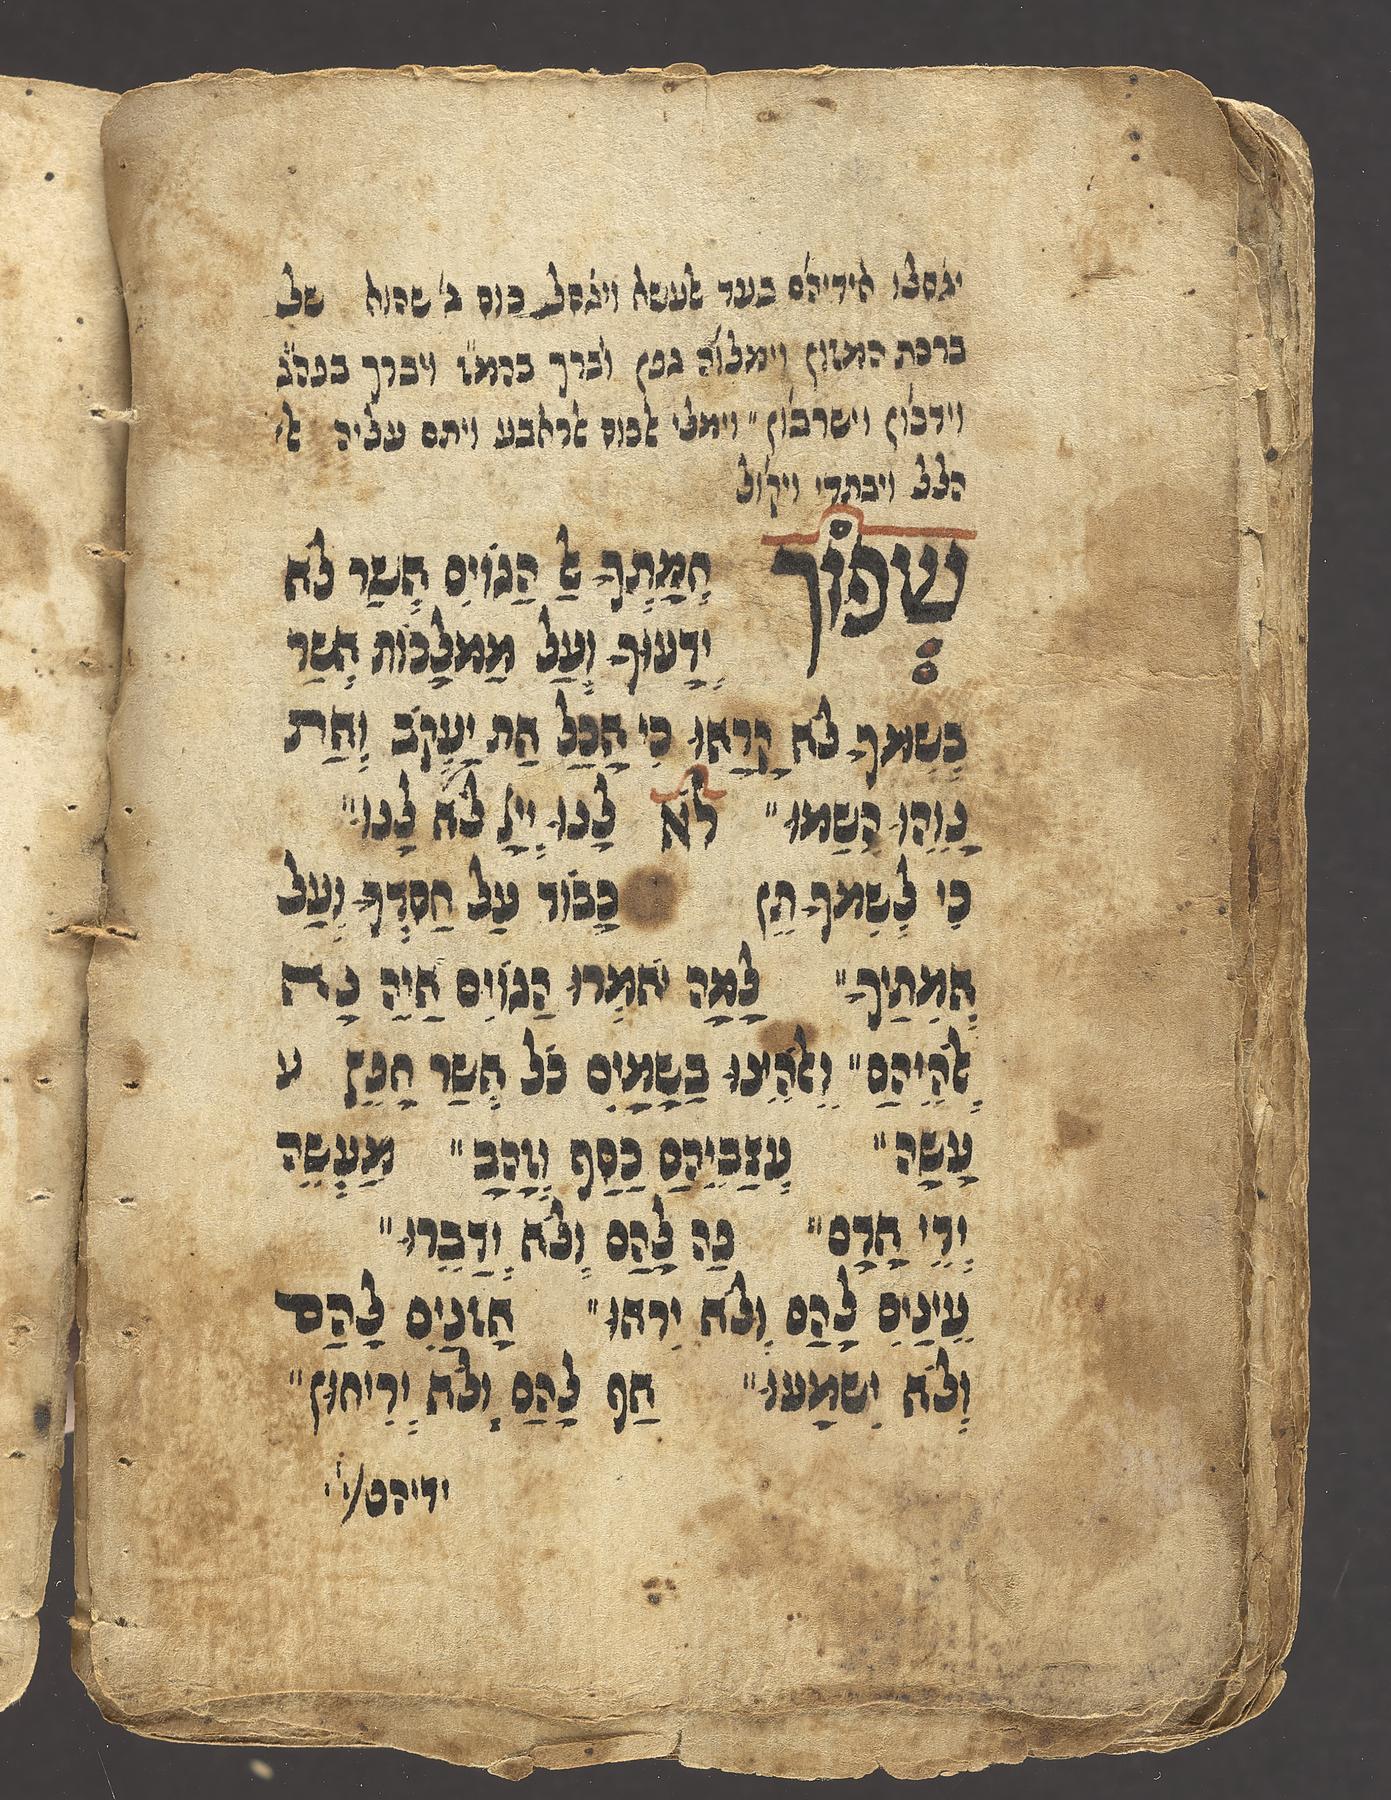 יגסלו אידיהם בעד לעשא ויגסל כוס ב' שהוא של
ברכת המזון וימלוה גפן וברך בהמ"ז ויברך בפה"ג
וידכון וישרבון" וימלי אלכוס אלראבע ויתם עליה אל
הלל ויבתדי ויקול
שָׁפוֹךְ חֲמַתְךָ אֶל הַגּוֹיִם אֲשֶׁר לֹא
יְדָעוּךָ וְעַל מַמְלָכוֹת אֲשֶׁר
בְּשִׁמְךָ לֹא קָרָאוּ כִּי אָכַל אֶת יַעֲקֹב וְאֶת
נָוֵהוּ הֵשַׁמּוּ" לֹא לָנוּ יְיָ לֹא לָנוּ"
כִּי לְשִׁמְךָ תֵּן כָּבוֹד עַל חַסְדְּךָ וְעַל
אֲמִתֶּךָ" לָמָּה יֹאמְרוּ הַגּוֹיִם אַיֵּה נָא
אֱלֹהֵיהֶם" וֵאלֹהֵינוּ בַשָּׁמַיִם כֹּל אֲשֶׁר חָפֵץ ע
עָשָׂה" עֲצַבֵּיהֶם כֶּסֶף וְזָהָב" מַעֲשֵׂה
יְדֵי אָדָם" פֶּה לָהֶם וְלֹא יְדַבֵּרוּ"
עֵינַיִם לָהֶם וְלֹא יִרְאוּ" אָזְנַיִם לָהֶם
וְלֹא יִשְׁמָעוּ" אַף לָהֶם וְלֹא יְרִיחוּן"
ידיהם